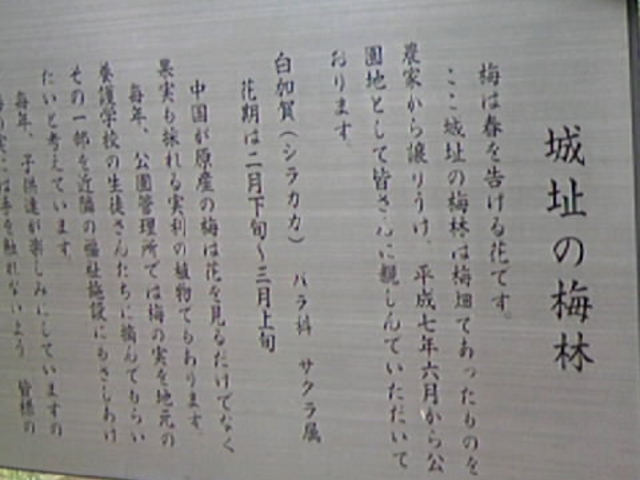 城址の梅林
梅は春を告げる花です。
ここ城址の梅林は梅畑であったものを
農家から譲りうけ、平成七年六月から公
園地として皆さんに親しんでいただいて
おります。
白加賀（シラカカ） バラ科 サクラ属
花期は二月下旬～三月上旬
中国が原産の梅は花を見るだけでなく
果実も採れる実利の植物でもあります。
毎年、公園管理所では梅の実を地元の
養護学校の生徒さんたちに摘んでもらい
その一部を近隣の福祉施設にもさしあげ
たいと考えています。
毎年、子供達が楽しみにしていますの
実には手を触れないよう 皆様の